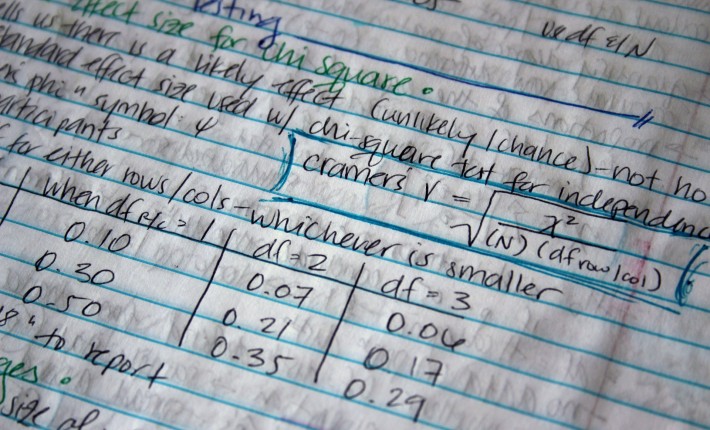 testing
use df & N
effect size for chi square.
tells us there is a likely effect (unlikely 1 chance) - not ho
standard effect size used w/ chi-square test for independenc
phi" symbol: φ
participants
cramers V = √ χ² / (N)(df row/col)
for either rows/cols - whichever is smaller
when df r/c = 1 | df = 2 | df = 3
0.10 | 0.07 | 0.06
0.30 | 0.21 | 0.17
0.50 | 0.35 | 0.29
" to report
size of